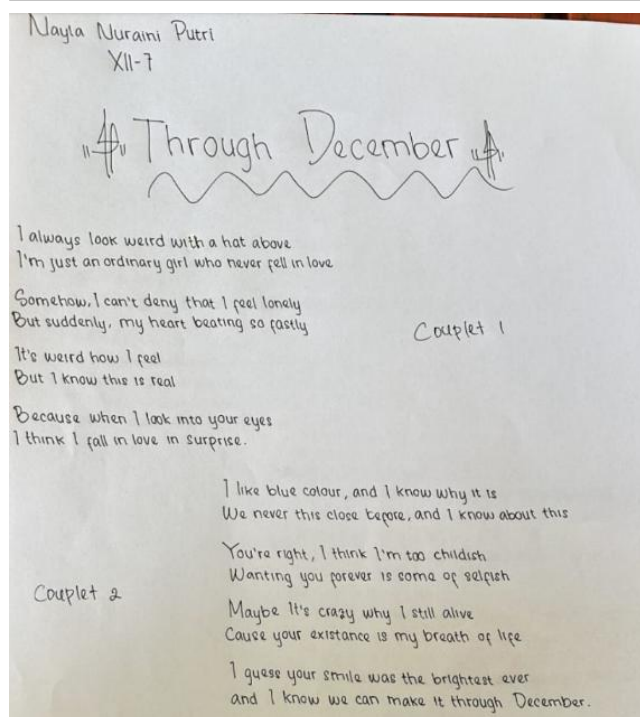 Nayla Nuraini Putri
XII-7
Through December
I always look weird with a hat above
I'm just an ordinary girl who never fell in love
Somehow, I can't deny that I feel lonely
But suddenly, my heart beating so fastly
Couplet 1
It's weird how I feel
But I know this is real
Because when I look into your eyes
I think I fall in love in surprise.
I like blue colour, and I know why it is
We never this close before, and I know about this
You're right, I think I'm too childish
Wanting you forever is some of selfish
Couplet 2
Maybe It's crazy why I still alive
Cause your existance is my breath of life
I guess your smile was the brightest ever
and I know we can make it through December.